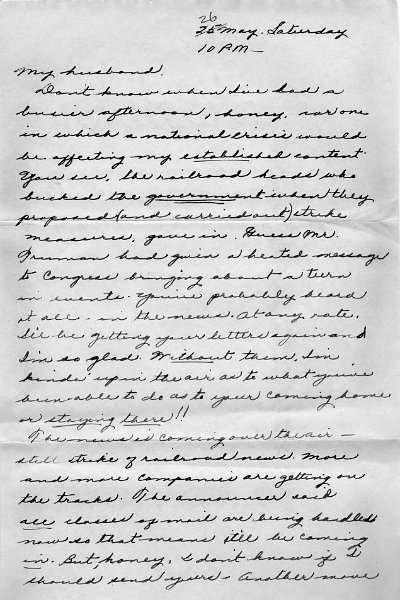 26
25 May. Saturday
10 PM —
My husband,
Don't know when I've had a
busier afternoon, honey, nor one
in which a national crisis would
be affecting my established content.
You see, the railroad heads who
bucked the government when they
proposed (and carried out) strike
measures, gave in. Guess Mr.
Truman had given a heated message
to Congress bringing about a turn
in events. You've probably heard
it all - in the news. At any rate,
I'll be getting your letters again and
I'm so glad. Without them, I'm
kinda' up in the air as to what you've
been able to do as to your coming home
or staying there!!
The news is coming over the air —
still strike of railroad news. More
and more companies are getting on
the tracks. The announcer said
all classes of mail are being handled
now so that means it'll be coming
in. But, honey, I don't know if I
should send yours - Another move